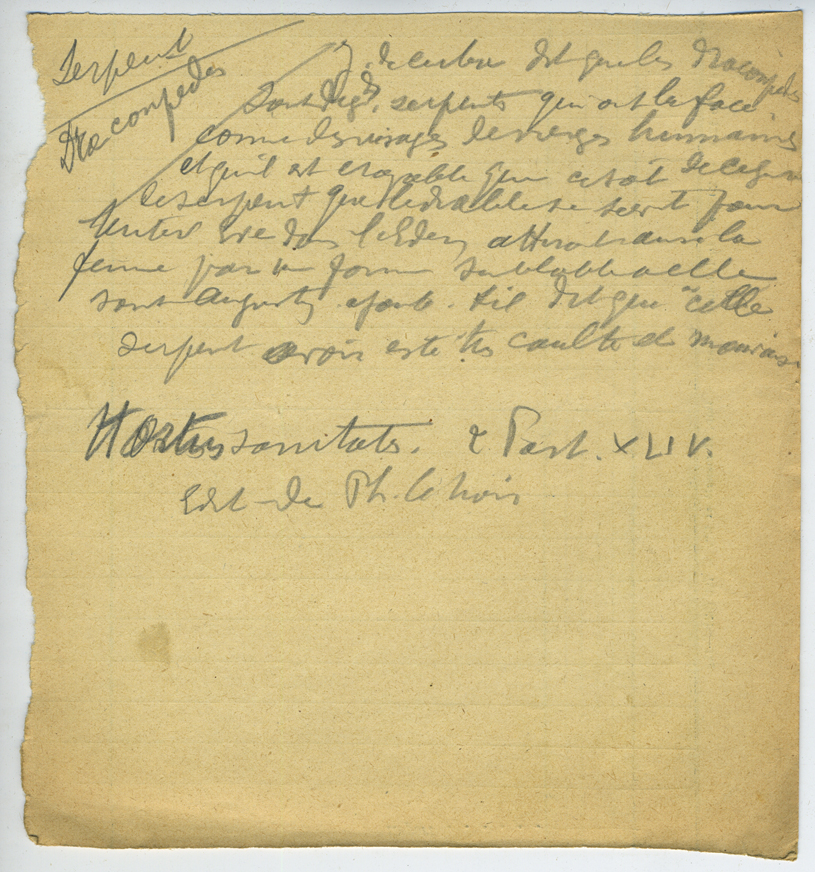 Serpent
Dracompedes
J. de Cuba dit que les dracompedes
sont de gds serpents qui ont la face
comme des visages de vierges humaines
et qu'il est croyable que c'etoit de ce genre
de serpent que le diable se servit pour
tenter Eve dans l'Eden, attira la
femme par une forme semblable a elle
saint Augustin ajoute il dit que "cette
serpent avoir este tres caulte et mauvais
Hortus sanitatis. 2 Part. XLIV.
Edit de Ph. le noir